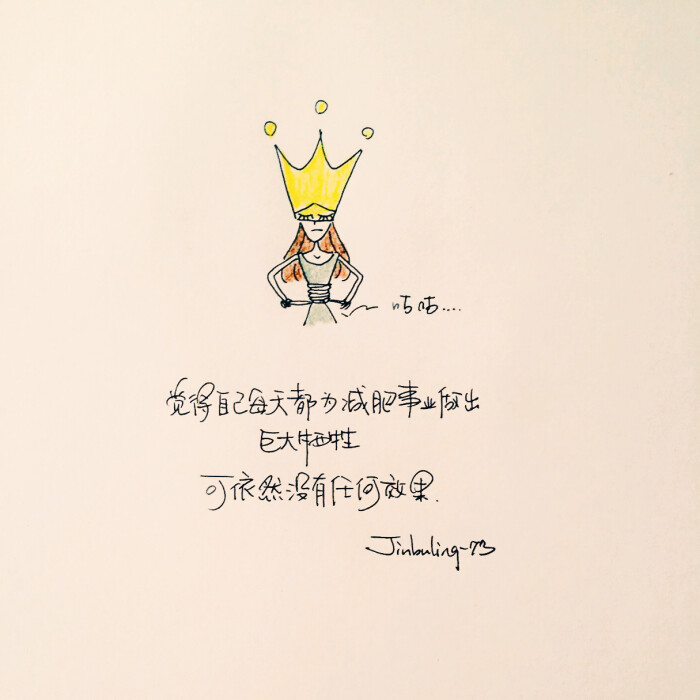 咕咕....
觉得自己每天都为减肥事业做出
巨大牺牲
可依然没有任何效果.
Jinbuling-73